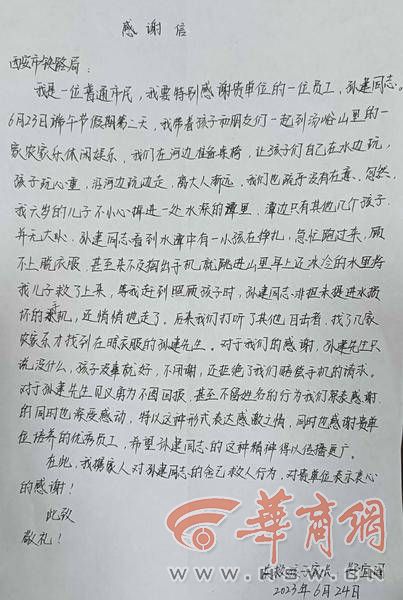 感谢信
西安市铁路局：
我是一位普通市民，我要特别感谢贵单位的一位员工，孙建同志。
6月23日端午节假期第二天，我带着孩子和朋友们一起到汤峪山里的一
家农家乐休闲娱乐，我们在河边准备桌椅，让孩子们自己在水边玩，
孩子玩心重，沿河边玩边走，离大人渐远，我们也疏于没有在意，忽然，
我六岁的儿子不小心掉进一处水深的潭里，潭边只有其他几个孩子，
并无大人，孙建同志看到水潭中有一小孩在挣扎，急忙跑过来，顾
不上脱衣服，甚至来不及掏出手机就跳进山里早上还冰冷的水里将
我儿子救了上来，等我赶到照顾孩子时，孙建同志非但未提进水损
坏的手机，还悄悄地走了。后来我们打听了其他目击者，找了几家
农家乐才找到在晾衣服的孙建先生。对于我们的感谢，孙建先生只
说没什么，孩子没事就好，不用谢，还拒绝了我们赔偿手机的请求。
对于孙建先生见义勇为不图回报，甚至不留姓名的行为我们深表感谢
的同时也深受感动，特以这种形式表达感激之情，同时也感谢贵单
位培养的优秀员工，希望孙建同志的这种精神得以传播更广。
在此，我携家人对孙建同志的舍己救人行为，对贵单位表示衷心
的感谢！
此致
敬礼！
2023年6月24日
华商网
www.hsw.cn